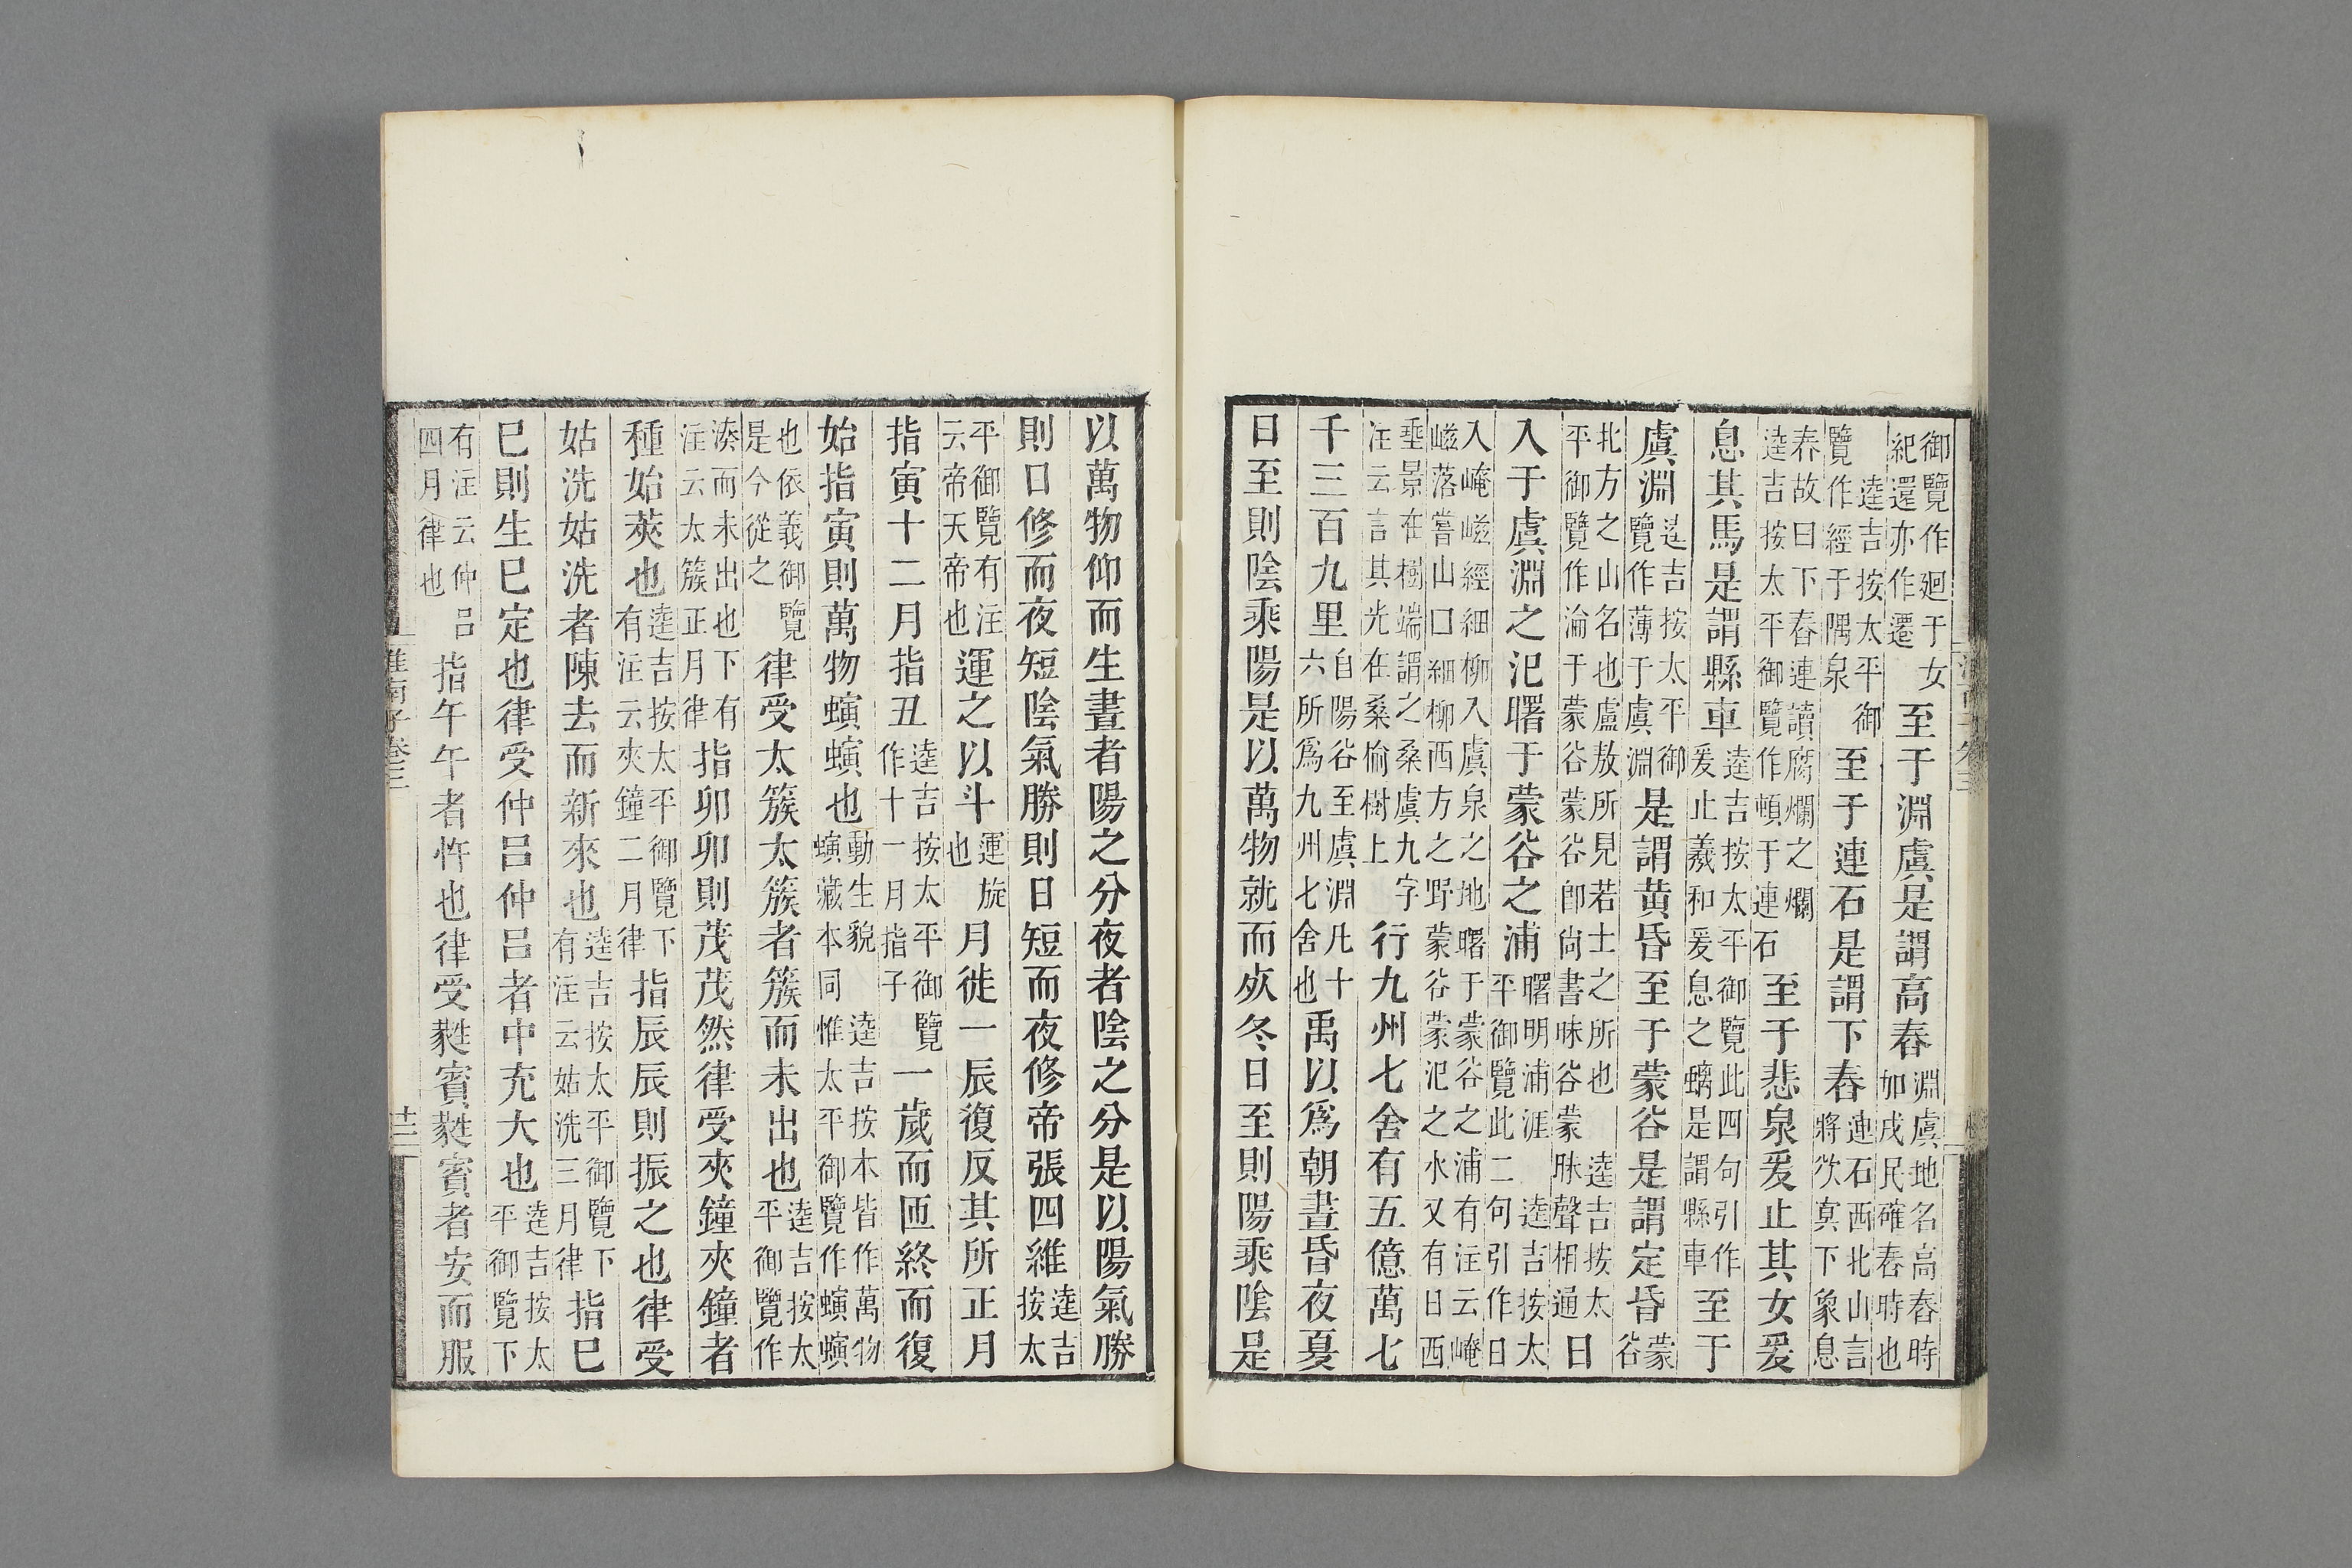 御覽作廻于女紀還亦作遷至于淵虞是謂高舂淵虞地名高舂時加戌民確舂時也
逵吉按太平御覽作經于隅泉至于連石是謂下舂連石西北山言將欲冥下象息
舂故曰下舂連讀腐爛之爛逵吉按太平御覽作頓于連石至于悲泉爰止其女爰
息其馬是謂縣車逵吉按太平御覽此四句引作爰止羲和爰息之螭是謂縣車至于
虞淵逵吉按太平御覽作薄于虞淵是謂黃昏至于蒙谷是謂定昏蒙谷
北方之山名也盧敖所見若士之所也逵吉按太平御覽作淪于蒙谷蒙谷卽尙書昧谷蒙昧聲相通日
入于虞淵之汜曙于蒙谷之浦曙明浦涯逵吉按太平御覽此二句引作日
入崦嵫經細柳入虞泉之地曙于蒙谷之浦有注云崦嵫落嘗山口細柳西方之野蒙谷蒙汜之水又有日西
垂景在樹端謂之桑虞九字注云言其光在桑楡樹上行九州七舍有五億萬七
千三百九里自陽谷至虞淵凡十六所爲九州七舍也禹以爲朝晝昏夜夏
日至則陰乘陽是以萬物就而死冬日至則陽乘陰是
以萬物仰而生晝者陽之分夜者陰之分是以陽氣勝
則日修而夜短陰氣勝則日短而夜修帝張四維逵吉按太
平御覽有注云帝天帝也運之以斗運旋也月徙一辰復反其所正月
指寅十二月指丑逵吉按太平御覽作十一月指子一歲而匝終而復
始指寅則萬物螾螾也動生貌螾藏本同惟太平御覽作螾螾逵吉按本皆作萬物
也依義御覽是今從之律受太簇太簇者簇而未出也逵吉按太平御覽作
湊而未出也下有注云太簇正月律指卯卯則茂茂然律受夾鐘夾鐘者
種始莢也逵吉按太平御覽下有注云夾鐘二月律指辰辰則振之也律受
姑洗姑洗者陳去而新來也逵吉按太平御覽下有注云姑洗三月律指巳
巳則生巳定也律受仲呂仲呂者中充大也逵吉按太平御覽下
有注云仲呂四月律也指午午者忤也律受蕤賓蕤賓者安而服
淮南子卷三
十三